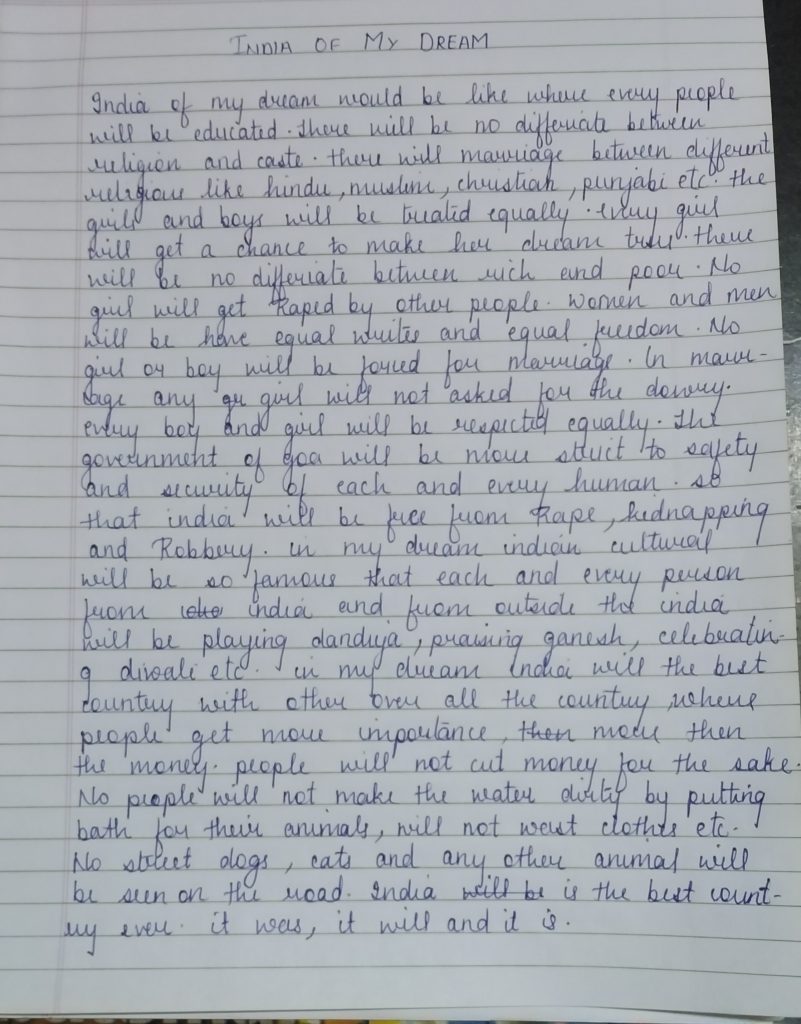 INDIA OF MY DREAM
India of my dream would be like where every people
will be educated. there will be no differiate between
religion and caste. there will marriage between different
religious like hindu, muslim, christiah, punjabi etc. the
girls and boys will be treated equally. every girl
will get a chance to make her dream true. there
will be no differiate between rich and poor. No
girl will get Raped by other people. women and men
will be have equal writes and equal freedom. No
girl or boy will be forced for marriage. In marr-
iage any gr girl will not asked for the dowry.
every boy and girl will be respected equally. The
government of goa will be more strict to safety
and security of each and every human. so
that india will be free from Rape, kidnapping
and Robbery. in my dream indian cultural
will be so famous that each and every person
from india and from outside the india
will be playing dandiya, praising ganesh, celebratin-
g diwali etc. in my dream India will the best
country with other over all the country, where
people get more importance, then more then
the money. people will not cut money for the sake.
No people will not make the water dirty by putting
bath for their animals, will not clothes etc.
No street dogs, cats and any other animal will
be seen on the road. India will be is the best count-
ry ever. it was, it will and it is.